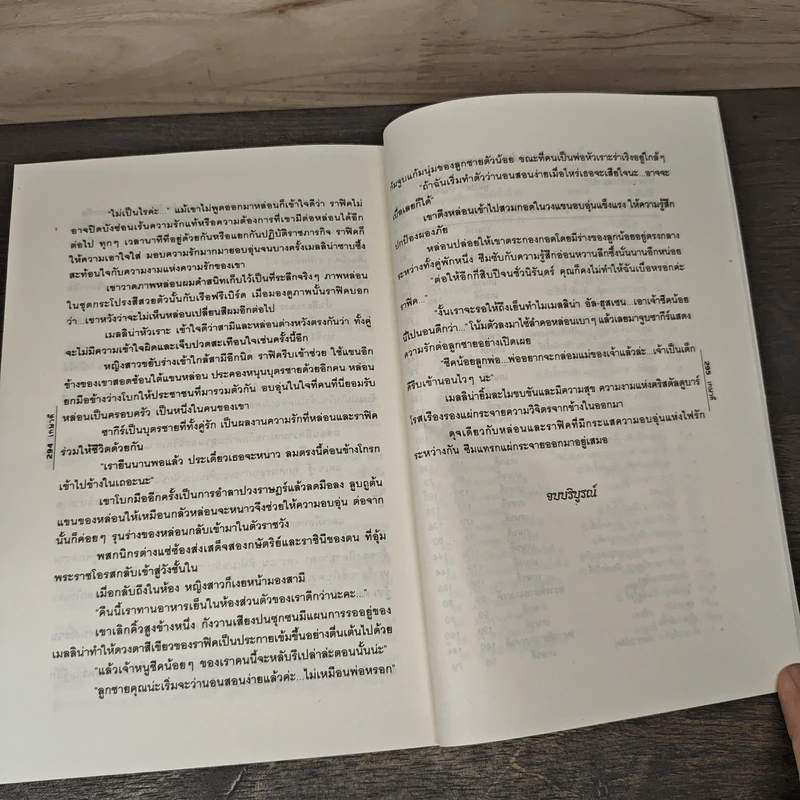 "ไม่เป็นไรค่ะ..." แม้เขาไม่พูดออกมาหล่อนก็เข้าใจดีว่า ราฟิคไม่
อาจปิดบังซ่อนเร้นความรักแท้หรือความต้องการที่เขามีต่อหล่อนได้อีก
ต่อไป ทุกๆ เวลานาทีที่อยู่ด้วยกันหรือแยกกันปฏิบัติราชภารกิจ ราฟิคก็
ให้ความเอาใจใส่ มอบความรักมากมายอบอุ่นจนบางครั้งเมลลิน่าซาบซึ้ง
สะท้อนใจกับความงามแห่งความรักของเขา
เขาวาดภาพหล่อนผมดำสนิทเก็บไว้เป็นที่ระลึกจริงๆ ภาพหล่อน
ในชุดกระโปรงสีสวยตัวนั้นกับเรือฟรีเบิร์ด เมื่อมองดูภาพนั้นราฟิคบอก
ว่า...เขาหวังว่าจะไม่เห็นหล่อนเปลี่ยนสีผมอีกต่อไป
เมลลิน่าหัวเราะ เข้าใจดีว่าสามีและหล่อนต่างหวังตรงกันว่า ทั้งคู่
จะไม่มีความเข้าใจผิดและเจ็บปวดสะเทือนใจเช่นครั้งนี้อีก
หญิงสาวขยับร่างเข้าใกล้สามีอีกนิด ราฟิครีบเข้าช่วย ใช้แขนอีก
ข้างของเขาสอดซ้อนใต้แขนหล่อน ประคองหนุนบุตรชายด้วยอีกคน หล่อน
ยกมือข้างว่างโบกให้ประชาชนที่มารวมตัวกัน อบอุ่นในใจที่คนที่นี่ยอมรับ
หล่อนเป็นครอบครัว เป็นหนึ่งในคนของเขา
ซากีร์เป็นบุตรชายที่ทั้งคู่รัก เป็นผลงานความรักที่หล่อนและราฟิค
ร่วมให้ชีวิตด้วยกัน
"เรายืนนานพอแล้ว ประเดี๋ยวเธอจะหนาว ลมตรงนี้ค่อนข้างโกรก
เข้าไปข้างในเถอะนะ"
เขาโบกมืออีกครั้งเป็นการอำลาปวงราษฎร์แล้วลดมือลง ลูบถูต้น
แขนของหล่อนให้เหมือนกลัวหล่อนจะหนาวจึงช่วยให้ความอบอุ่น ต่อจาก
นั้นก็ค่อยๆ รุนร่างของหล่อนกลับเข้ามาในตัวราชวัง
พสกนิกรต่างแซ่ซ้องส่งเสด็จสองกษัตริย์และราชินีของตน ที่อุ้ม
พระราชโอรสกลับเข้าสู่วังชั้นใน
เมื่อกลับถึงในห้อง หญิงสาวก็เงยหน้ามองสามี
"คืนนี้เราทานอาหารเย็นในห้องส่วนตัวของเราดีกว่านะคะ..."
เขาเลิกคิ้วสูงข้างหนึ่ง กังวานเสียงปนซุกซนมีแผนการรออยู่ของ
เมลลิน่าทำให้ดวงตาสีเขียวของราฟิคเป็นประกายเข้มขึ้นอย่างตื่นเต้นไปด้วย
"แล้วเจ้าหนูชีคน้อยๆ ของเราคนนี้จะหลับรึเปล่าล่ะตอนนั้นน่ะ"
"ลูกชายคุณน่ะเริ่มจะว่านอนสอนง่ายแล้วค่ะ...ไม่เหมือนพ่อหรอก"
294
ก้มจูบแก้มนุ่มของลูกชายตัวน้อย ขณะที่คนเป็นพ่อหัวเราะร่าเริงอยู่ใกล้ๆ
"ถ้าฉันเริ่มทำตัวว่านอนสอนง่ายเมื่อไหร่เธอจะเสียใจนะ...อาจจะ
เบื่อเลยก็ได้"
เขาดึงหล่อนเข้าไปสวมกอดในวงแขนอบอุ่นแข็งแรง ให้ความรู้สึก
ปกป้องผองภัย
หล่อนปล่อยให้เขาตระกองกอดโดยมีร่างของลูกน้อยอยู่ตรงกลาง
ระหว่างทั้งคู่พักหนึ่ง ซึมซับกับความรู้สึกอ่อนหวานลึกซึ้งนั่นนานอีกหน่อย
"ต่อให้อีกกี่สิบปีจนชั่วนิรันดร์ คุณก็คงไม่ทำให้ฉันเบื่อหรอกค่ะ
ราฟิค..."
"งั้นเราจะรอให้ถึงเย็นทำไมเมลลิน่า อัล-ฮุสเซน...เอาเจ้าชีคน้อย
นี่ไปนอนดีกว่า..." โน้มตัวลงมาไซ้ลำคอหล่อนเบาๆ แล้วเลยมาจูบซากีร์แสดง
ความรักต่อลูกชายอย่างเปิดเผย
"ชีคน้อยลูกพ่อ...พ่ออยากจะกล่อมแม่ของเจ้าแล้วล่ะ...เจ้าเป็นเด็ก
ดีรีบเข้านอนไวๆ นะ"
เมลลิน่ายิ้มละไมขบขันและมีความสุข ความงามแห่งคริสตัลดูบาร์
โรสเรืองรองแผ่กระจายความวิจิตรจากข้างในออกมา
ดุจเดียวกับหล่อนและราฟิคที่มีกระแสความอบอุ่นแห่งไฟรัก
ระหว่างกัน ซึมแทรกแผ่กระจายออกมาอยู่เสมอ
จบบริบูรณ์
295